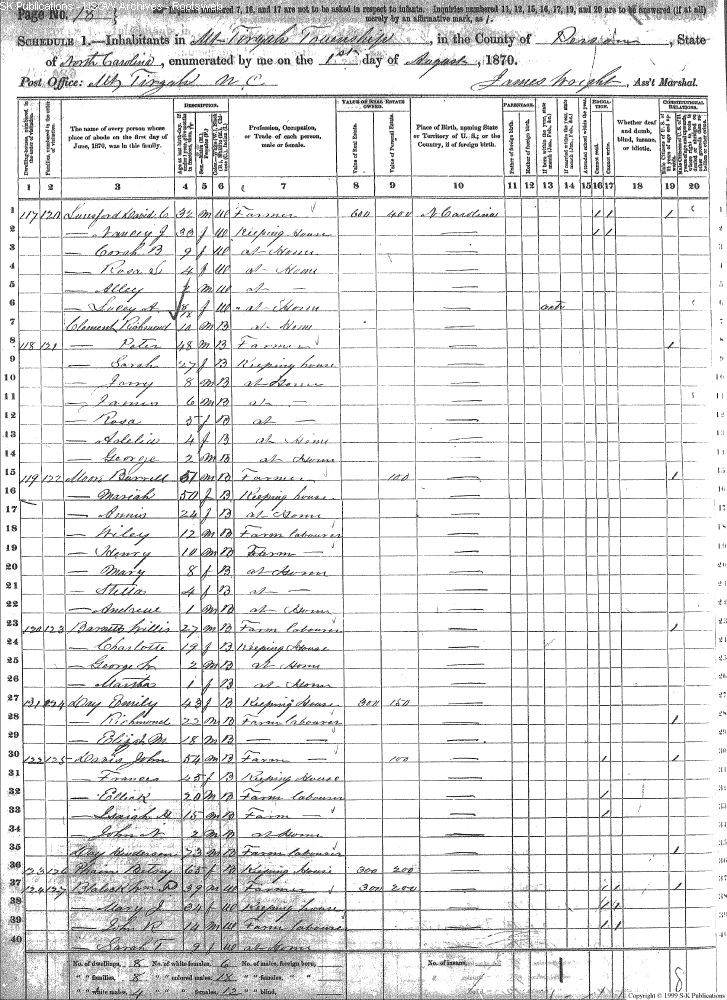 SK Publications - USGW Archives - Rootsweb
Page No. 18
Inquiries numbered 7, 16, and 17 are not to be asked in respect to infants. Inquiries numbered 11, 12, 15, 16, 17, 19, and 20 are to be answered (if at all) merely by an affirmative mark, as /.
SCHEDULE 1.—Inhabitants in Mt Tirzah Township, in the County of Person, State
of North Carolina, enumerated by me on the 1st day of August, 1870.
Post Office: Mt Tirzah N. C. James Wright, Ass't Marshal.
The name of every person whose place of abode on the first day of June, 1870, was in this family.
DESCRIPTION.
Profession, Occupation, or Trade of each person, male or female.
VALUE OF REAL ESTATE OWNED.
Value of Real Estate.
Value of Personal Estate.
Place of Birth, naming State or Territory of U. S.; or the Country, if of foreign birth.
PARENTAGE.
Father of foreign birth.
Mother of foreign birth.
EDUCATION.
Attended school within the year.
Cannot read.
Cannot write.
Whether deaf and dumb, blind, insane, or idiotic.
CONSTITUTIONAL RELATIONS.
1 2 3 4 5 6 7 8 9 10 11 12 13 14 15 16 17 18 19 20
1 117 120 Lunsford David C 32 m W Farmer 600 400 N Carolina / / / 1
2 — Nancy J 30 f W Keeping House — / / 2
3 — Corah B 9 f W at Home — 3
4 — Rosa 4 f W at Home — 4
5 — Alley 2 m W at — — 5
6 — Lucy A f W at Home — 6
7 Clement Richmond 10 m B at Home — 7
8 118 121 — Peter 48 m B Farmer — / 8
9 — Sarah 27 f B Keeping house — 9
10 — Jerry 8 m B at Home — 10
11 — James 6 m B at — — 11
12 — Rosa 5 f B at — — 12
13 — Adelia 4 f B at Home — 13
14 — George 2 m B at Home — 14
15 119 122 Moore Burrell 51 m B Farmer 100 — / 15
16 — Mariah 50 f B Keeping house — 16
17 — Annis 24 f B at Home — 17
18 — Wiley 12 m B Farm labourer — 18
19 — Henry 10 m B Farm — — 19
20 — Mary 8 f B at Home — 20
21 — Stella 4 f B at — — 21
22 — Andrew 1 m B at Home — 22
23 120 123 Barnett Willis 27 m B Farm labourer — / 23
24 — Charlotte 19 f B Keeping House — 24
25 — George W 2 m B at Home — 25
26 — Martha 1 f B at Home — 26
27 121 124 Day Emily 43 f B Keeping House 300 150 — 27
28 — Richmond 22 m B Farm labourer — / 28
29 — Elijah M 18 m B — — — 29
30 122 125 Davis John 54 m B Farm — 100 — / / 30
31 — Frances 45 f B Keeping House — 31
32 — Ellick 20 m B Farm labourer — / 32
33 — Isaiah 15 m B Farm — — / 33
34 — John N 2 m B at Home — 34
35 Day Henderson 73 m B Farm labourer — / 35
36 123 126 Betsy 65 f B Keeping House 300 200 — 36
37 124 127 Blalock Wm D 39 m W Farmer 300 200 — / / / 37
38 — Mary J 34 f W Keeping house — / / 38
39 — John R 14 m W Farm labourer — / / 39
40 — Sarah T 9 f W at Home — 40
No. of dwellings, 8 No. of white females, 6 No. of males, foreign born, No. of insane,
" " families, 8 " " colored males, 18 " " females,
" " white males, 4 " " females, 12 " " blind,
8
Copyright © 1999 S-K Publications